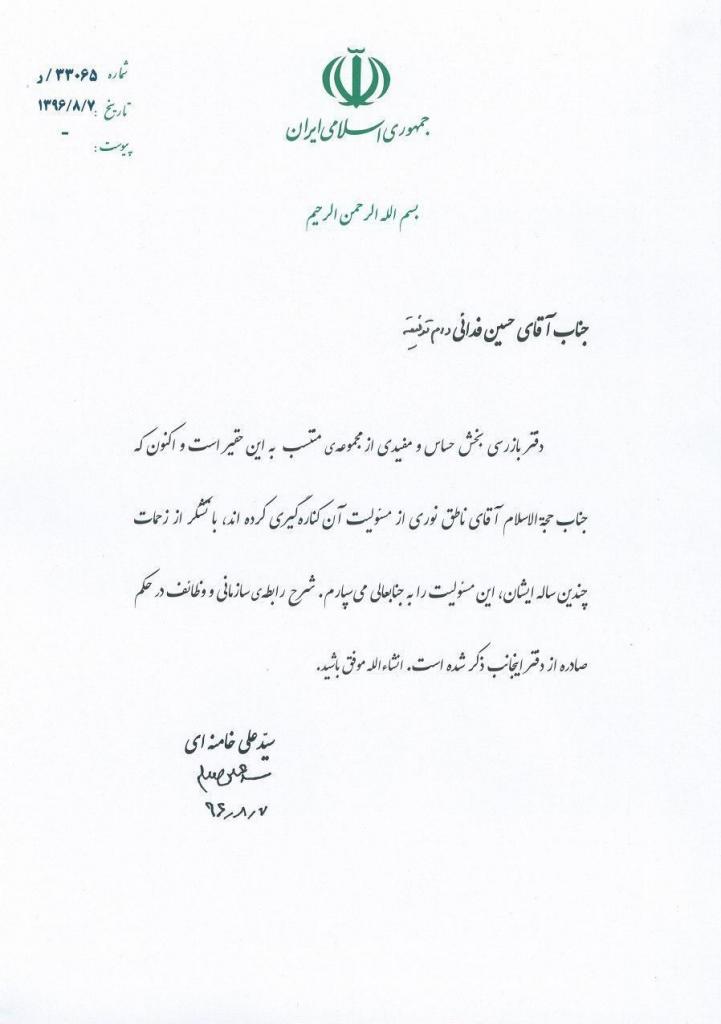 شماره ۳۳۰۶۵/د
تاریخ: ۱۳۹۶/۸/۷
پیوست: -
جمهوری اسلامی ایران
بسم الله الرحمن الرحیم
جناب آقای حسین فدائی دام توفیقه
دفتر بازرسی بخش حساس و مفیدی از مجموعه‌ی منتسب به این حقیر است و اکنون که
جناب حجة‌الاسلام آقای ناطق نوری از مسئولیت آن کناره‌گیری کرده اند، با تشکر از زحمات
چندین ساله ایشان، این مسئولیت را به جنابعالی می‌سپارم. شرح رابطه‌ی سازمانی و وظائف در حکم
صادره از دفتر اینجانب ذکر شده است. انشاءالله موفق باشید.
سیّدعلی خامنه ای
۹۶٫۸٫۷